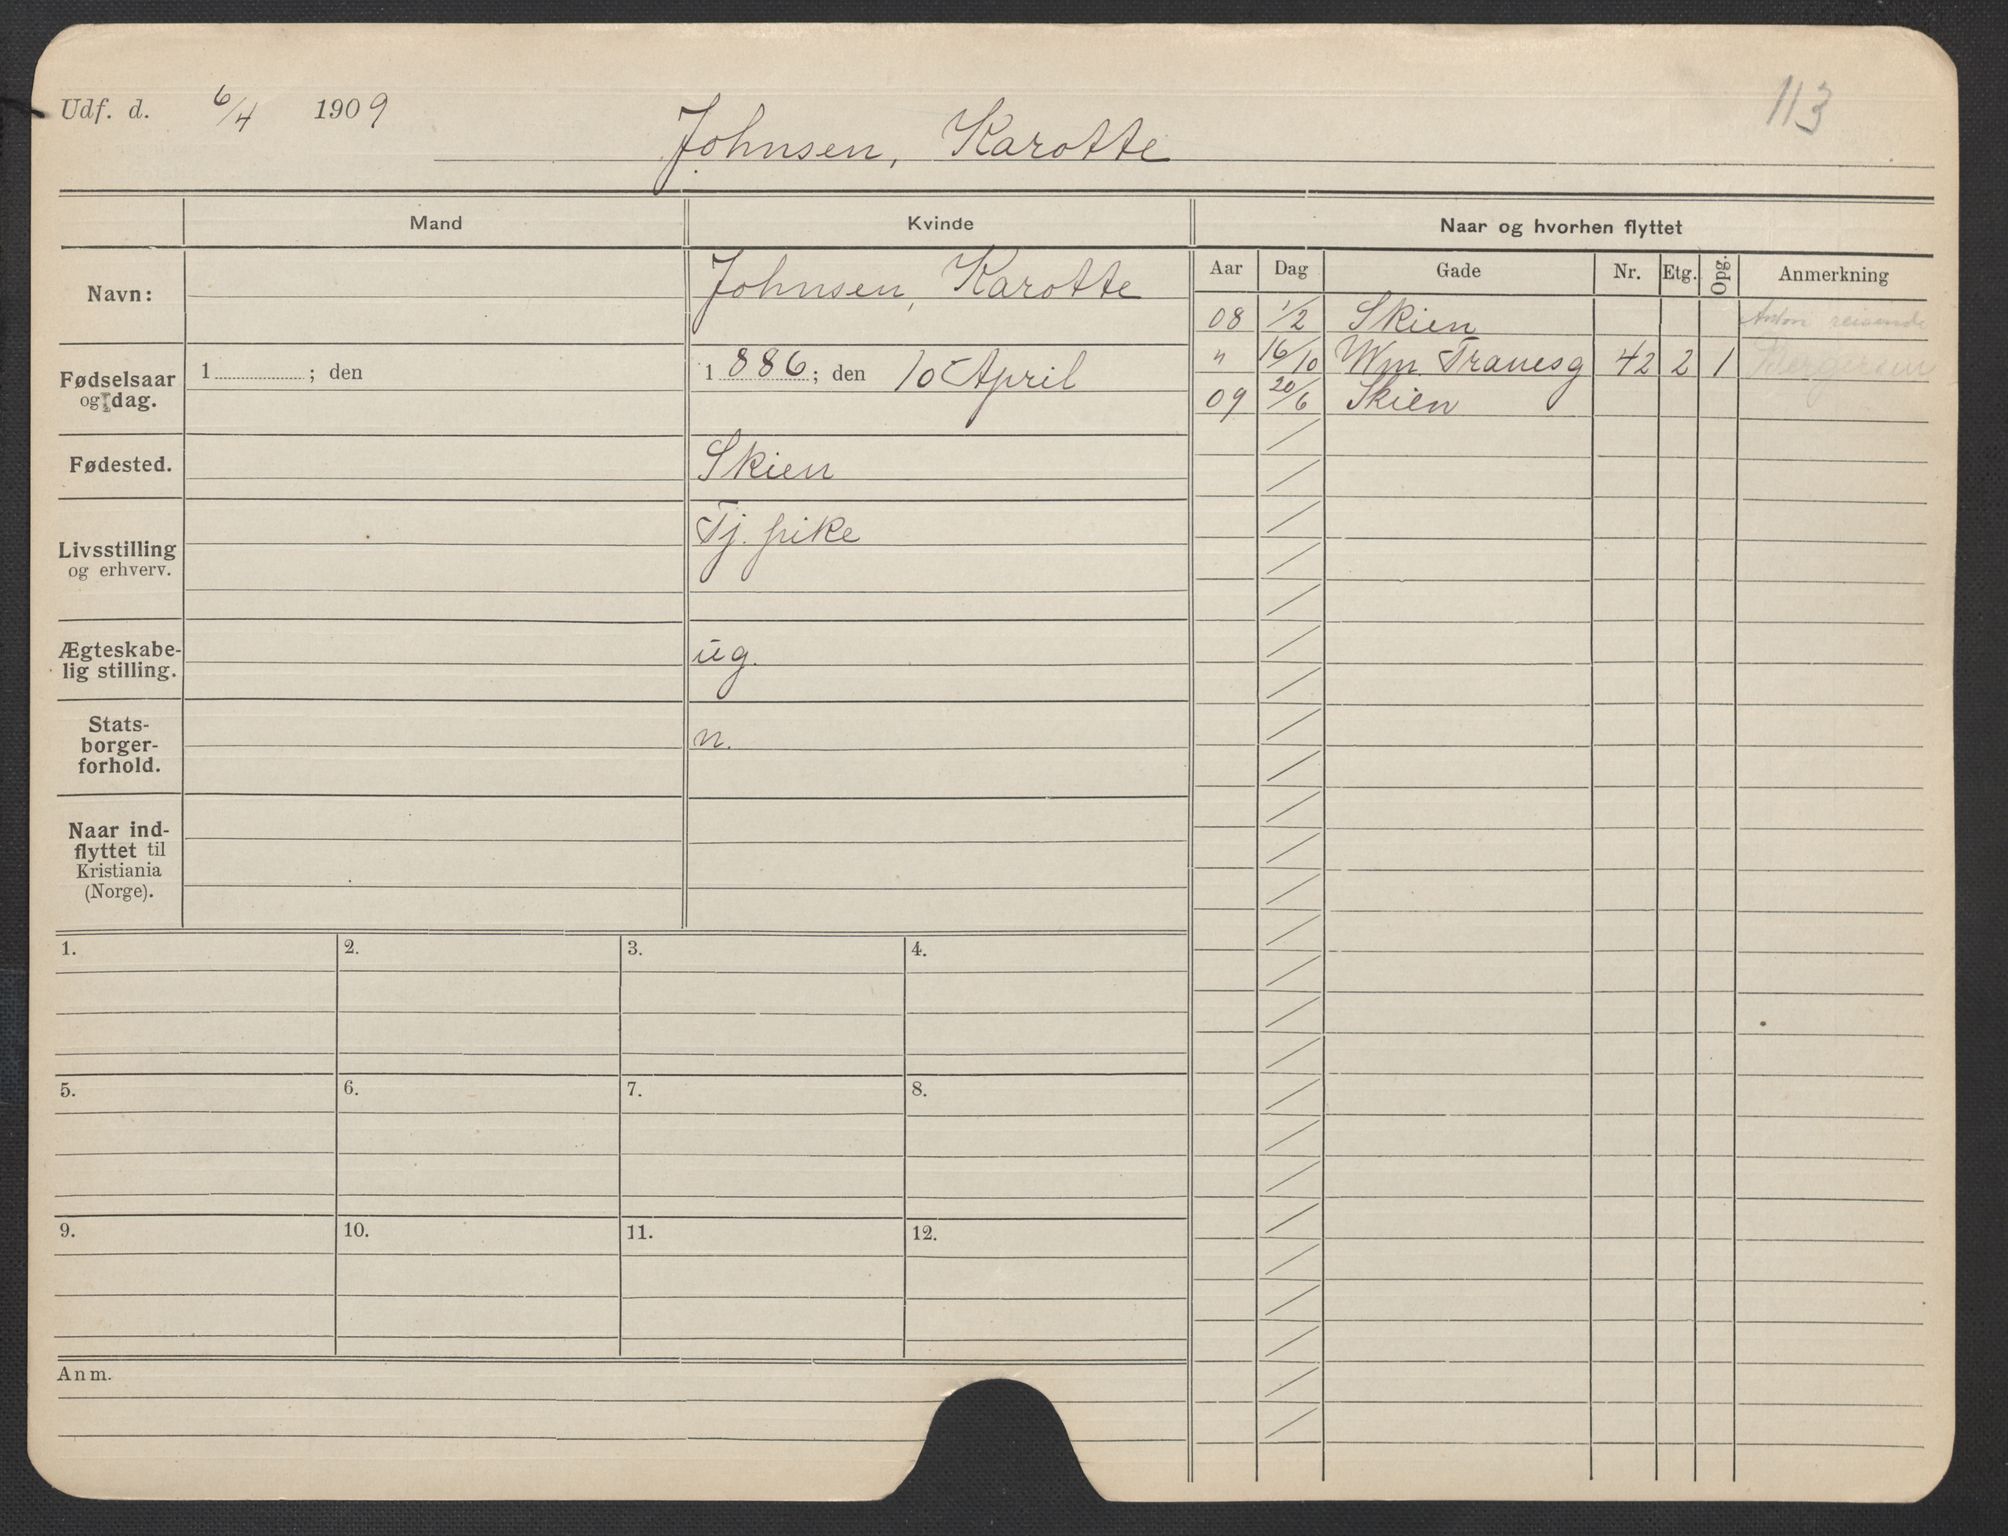 Udf. d. 6/4 1909
113
Johnsen, Karotte
Mand
Kvinde
Naar og hvorhen flyttet
Navn:
Johnsen, Karotte
Fødselsaar og dag.
1 ; den
1 886 ; den 10 April
Fødested.
Skien
Livsstilling og erhverv.
Tj. pike
Ægteskabe-
lig stilling.
ug.
Stats-
borger-
forhold.
n.
Naar ind-
flyttet til
Kristiania
(Norge).
Aar Dag Gade Nr. Etg. Opg. Anmerkning
08 1/2 Skien Anton reisende
" 16/10 Wm Tranesg 42 2 1 Bergersen
09 20/6 Skien
1. 2. 3. 4.
5. 6. 7. 8.
9. 10. 11. 12.
Anm.